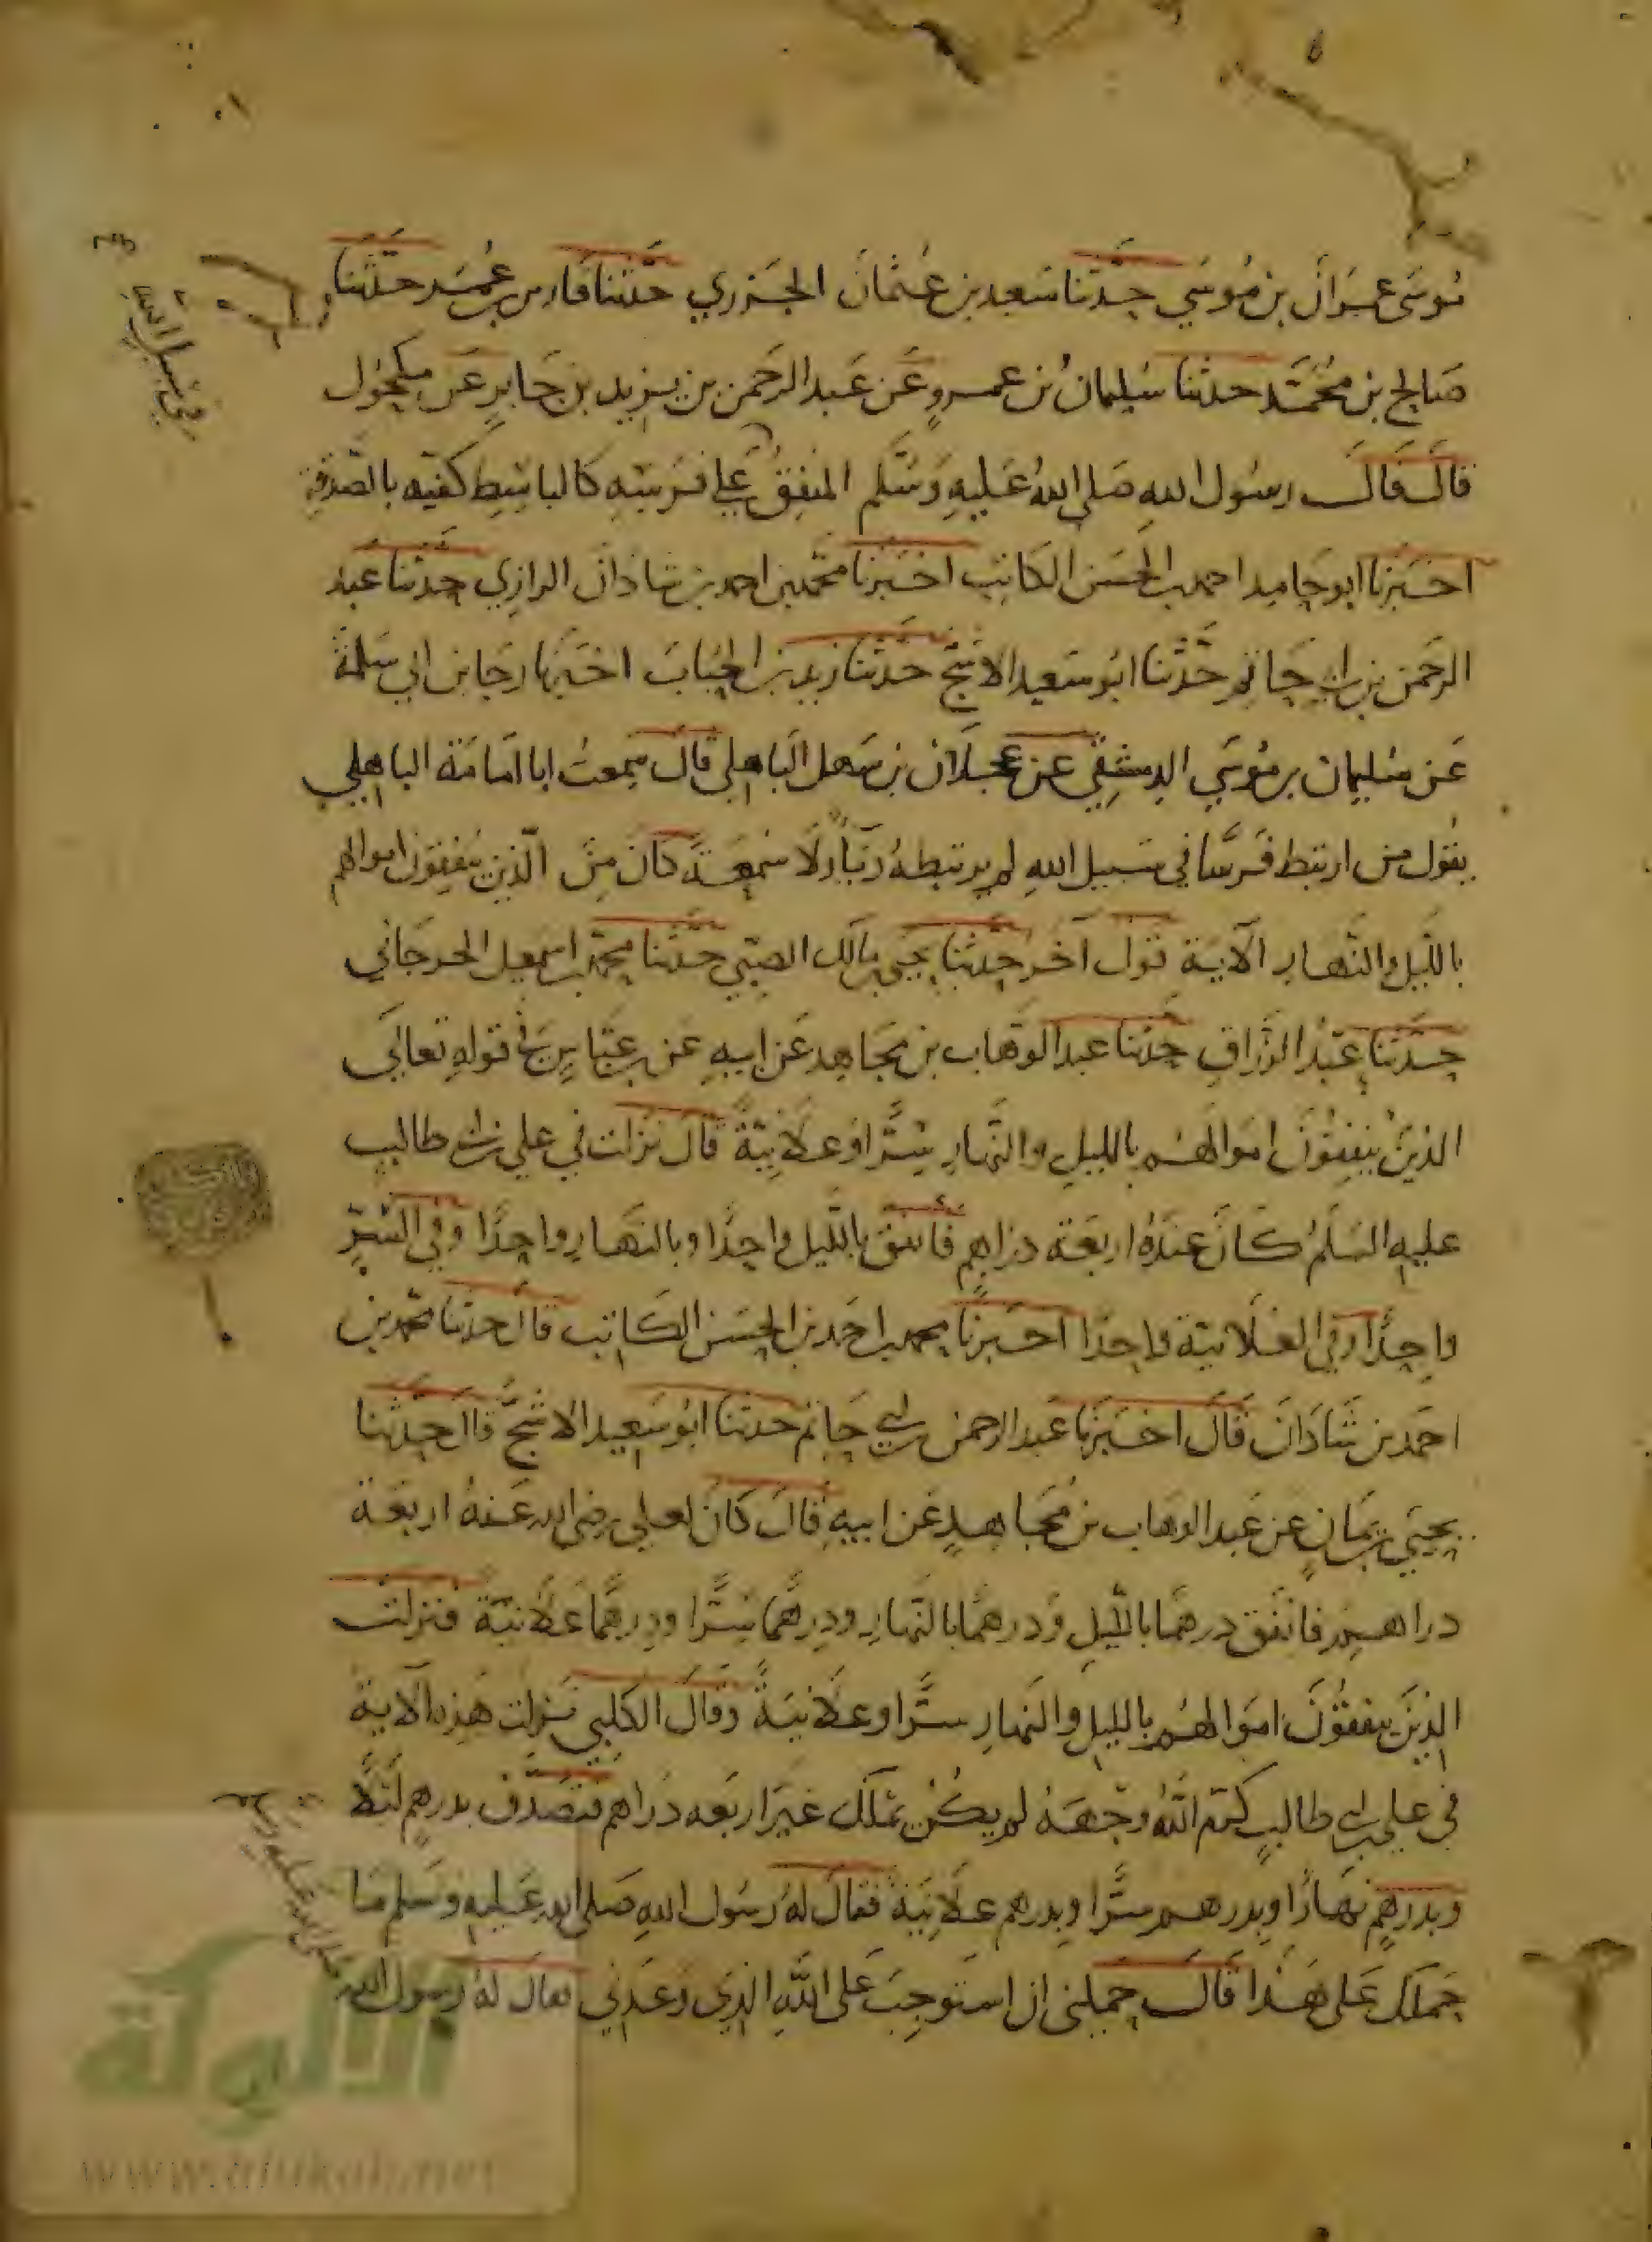 موسَى عمران بن مُوسَي حدّثنا سَعيد بن عُثمانَ الجَزري حدّثنا فارس بن عُمَر حدّثنا
صَالح بن محُمّد حدثنا سُليمانُ بن عمروٍ عَن عَبد الرحَمن بن يزيد بن جَابرٍ عَن مكحُول
قالَ قالَ رسُول اللهِ صَلى اللهُ عَليهِ وَسَلّم المنفِقُ علي فرَسِهِ كالباسِطِ كفّيه بالصّدقةِ
في سبيل الله
اخبَرنا ابو حَامِد احمد بن الحسَن الكاتِب اخبَرنا محمّد بن احمد بن شاذانَ الرازِي حدثنا عبد
الرحَمن بن ابي حَاتم حَدّثنا ابوُ سَعيد الاشجّ حَدّثنا زيد بن الحُبابَ اخبَرنا رجا بن ابي سَلمَة
عَن سُليمان بن مُوسَي الدمشقِي عن عجلانَ بن سَهل البَاهلي قالَ سَمِعتُ ابا امَامَة الباهلي
يقُول من ارتبط فَرسًا في سَبيل اللهِ لم يرتبطهُ ريَآ ولَا سُمعَة كانَ مِنَ الّذين يُنفِقون اموالهم
باللّيل والنّهارِ الآيَة قول آخر حدّثنا يحيى بن مالك الضبّي حدّثنا محمّد بن اسمعيل الجرجَاني
حدّثنا عَبْدُ الرزَّاقِ حدّثنا عبد الوهّاب بن مجَاهِد عَن ابيهِ عَن ابن عبّاسٍ في قولهِ تعالَى
الذينَ ينفِقُونَ امَوالهُم بالليلِ والنّهارِ سِرّا وَعلَانِيَةً قالَ نَزلت في علي بن ابي طالبٍ
عليهِ السَلمُ كانَ عندَهُ اربَعَة دراهِمٍ فانفق باللّيل واحِدًا وبالنهَارِ واحِدًا وفي السِّرِّ
واحِدًا وفي العلَانيَة واحِدًا اخبَرنا محمد بن احَمد بن الحسَن الكاتِب قالَ حدّثنا محمّد بن
احَمد بن شاذَانَ قَالَ اخبَرنَا عَبد الرحمن بن ابي حَاتم حدّثنا ابوُ سَعِيد الاشجّ قالَ حدّثنا
يحيَي بن يمَانٍ عن عَبد الوهاب بن مُجَاهدٍ عَن ابيهِ قالَ كانَ لعلي رضي الله عَنهُ اربَعَة
دراهمٍ فانفَق درهمًا باللّيلِ وَدرهمًا بالنّهارِ ودِرهمًا سِرًّا ودِرهمًا عَلانيَةً فنزلَت
الذينَ ينفقُونَ امَوالهُم بالليلِ والنهارِ سرًّا وعلَانيَةً وقالَ الكلبي نَزلت هَذِه الآيةُ
في علي بن ابي طالبٍ كرّم اللّهُ وجهَهُ لم يكُنْ يملكَ غيرَ اربَعه دَراهم فتصَدّق بدرهمٍ ليْلًا
وبدرَهمٍ نهَارًا وبدرهم سِرًّا وبدرهم علَانِيَة فقالَ لهُ رسُول اللهِ صَلى الله عَليهِ وَسَلم مَا
حَملَك عَلى هَذا قَالَ حمَلني ان استَوجِبَ عَلى اللّهِ الذِي وَعَدني فقالَ لهُ رسول الله
صلى الله عليه وسلم
الألوكة
www.alukah.net